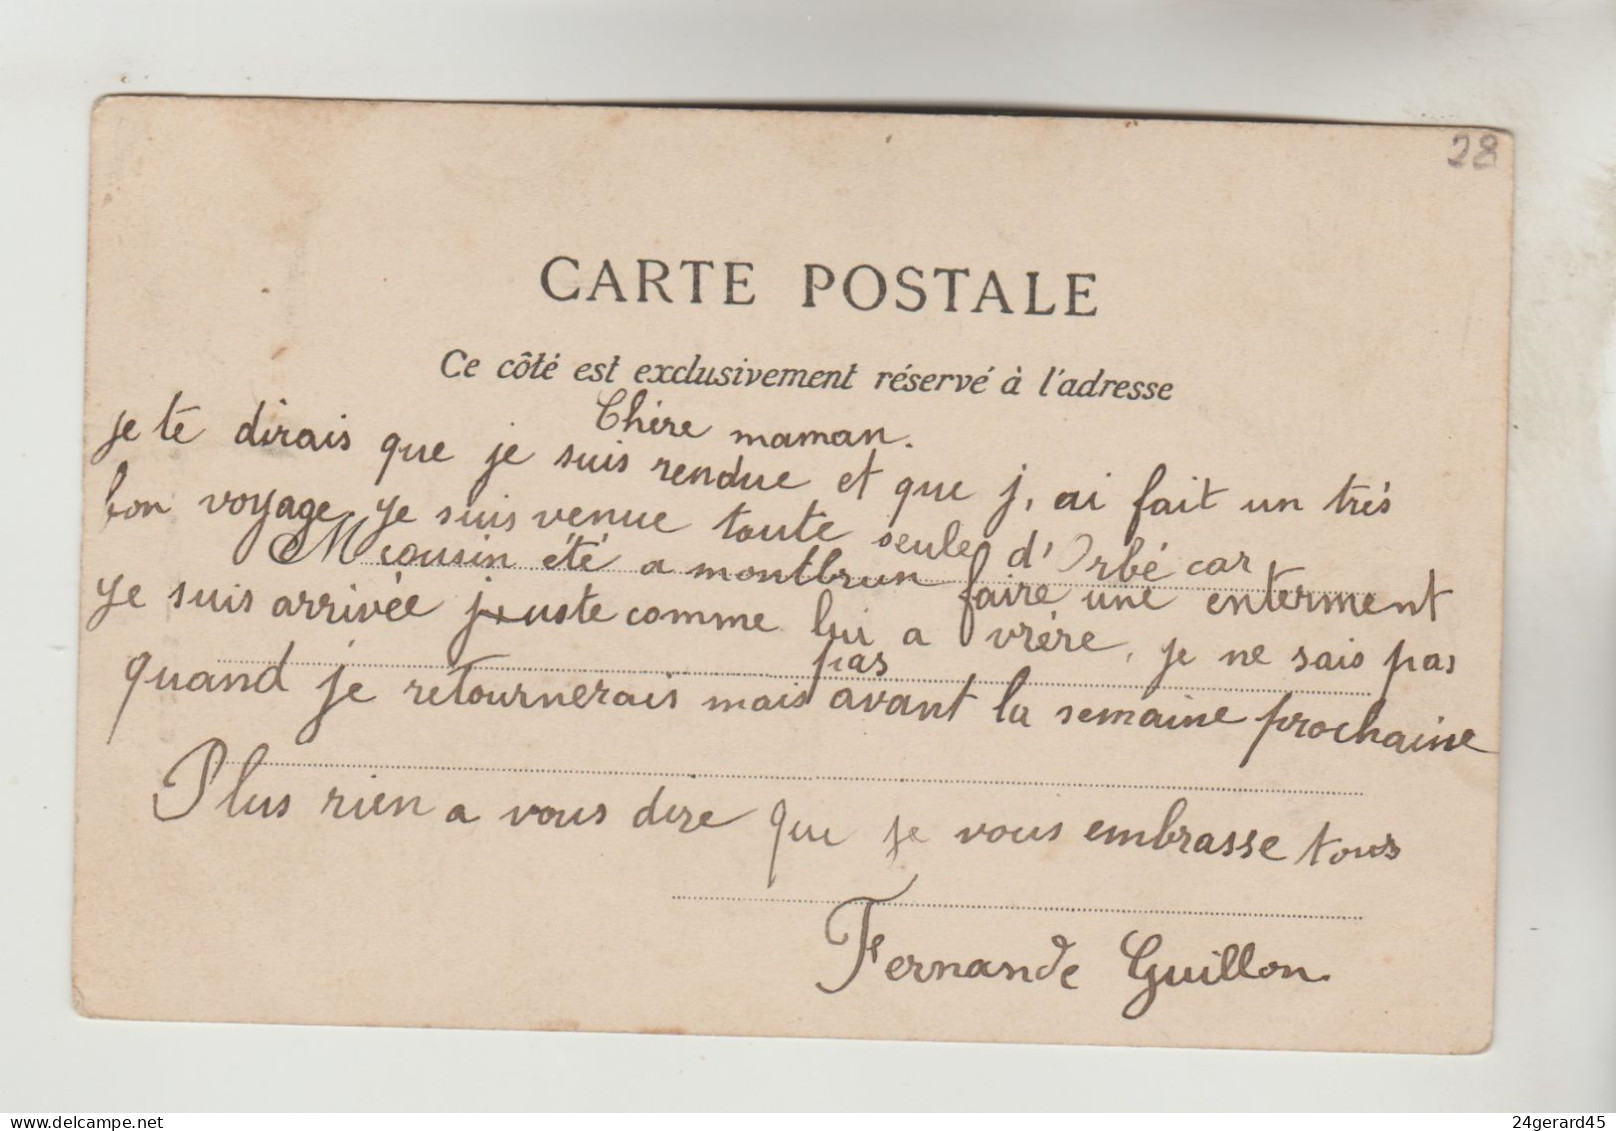 28
CARTE POSTALE
Ce côté est exclusivement réservé à l'adresse
Chère maman.
je te dirais que je suis rendue et que j, ai fait un très
bon voyage je suis venue toute seule d'Orbé car
M cousin été a montbrun faire une enterment
je suis arrivée juste comme lui a vrére, je ne sais pas
quand je retournerais mais pas avant la semaine prochaine
Plus rien a vous dire que je vous embrasse tous
Fernande Guillon.
delcampe.net
24gerard45